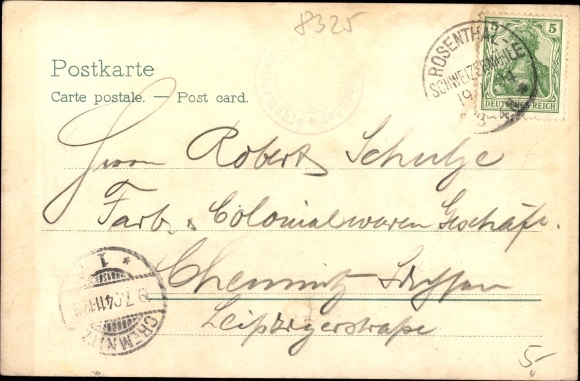 8325
Postkarte
Carte postale. — Post card.
ROSENTHAL-
SCHWEIZERMÜHLE
5
DEUTSCHES REICH
Herrn Robert Schulze
Farb. & Colonialwaren Geschäft.
Chemnitz-
Leipzigerstraße
1
9.7.04 11-12
CHEMNITZ
5.